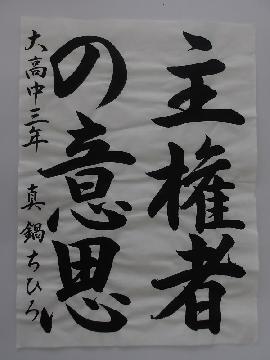 主権者
の意思
大高中三年 真鍋ちひろ